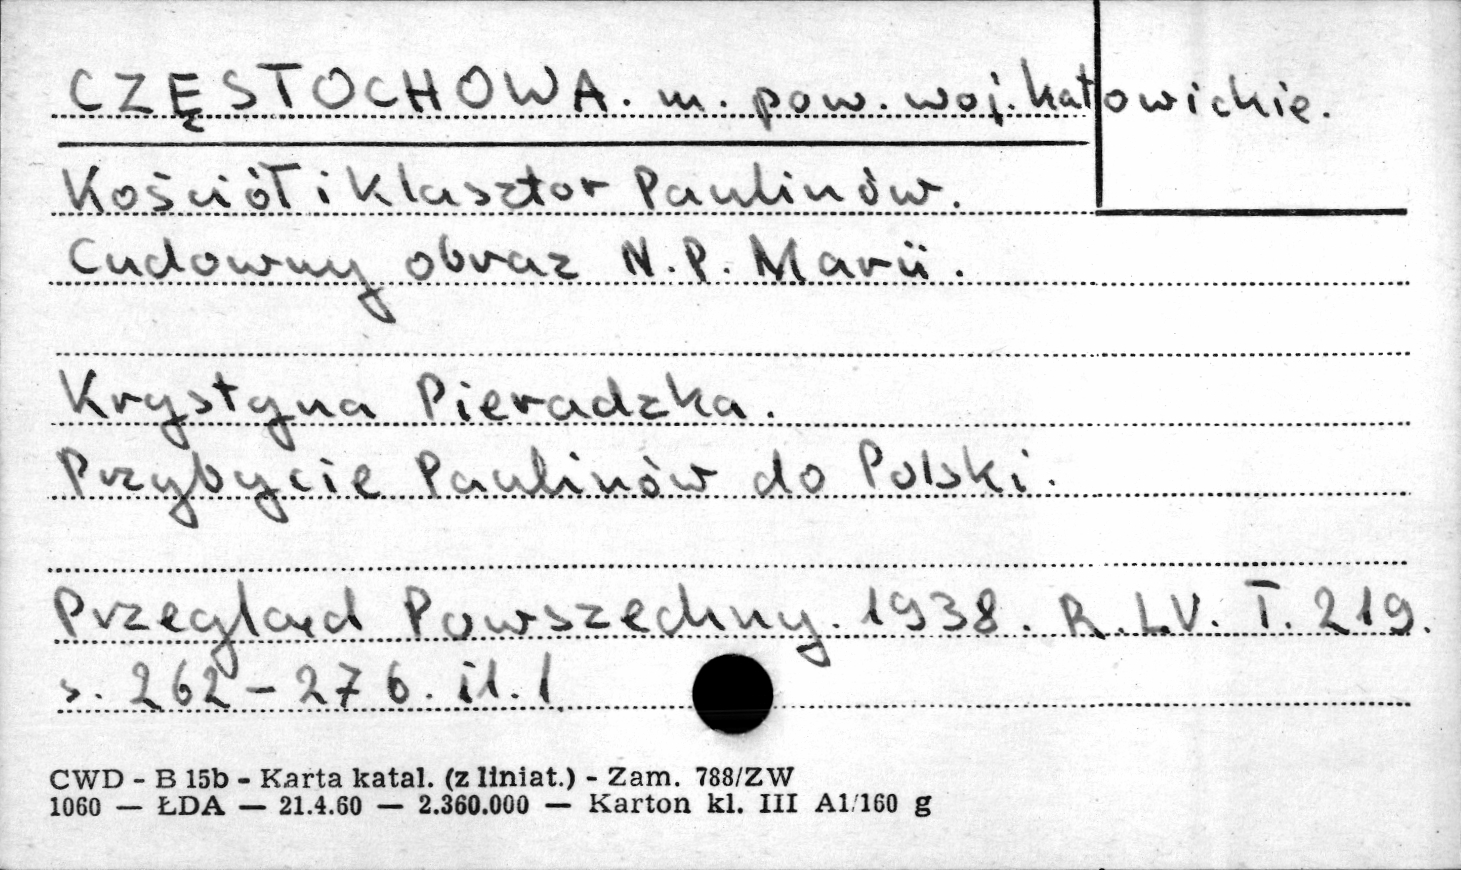 CZĘSTOCHOWA. m. pow. woj. katowickie.
Kościół i klasztor Paulinów.
Cudowny obraz N.P. Marii.
Krystyna Pieradzka.
Przybycie Paulinów do Polski.
Przegląd Powszechny. 1938. R.LV. T. 219.
s. 262-276. il. 1
CWD - B 15b - Karta katal. (z liniat.) - Zam. 788/ZW
1060 — ŁDA — 21.4.60 — 2.360.000 — Karton kl. III A1/160 g